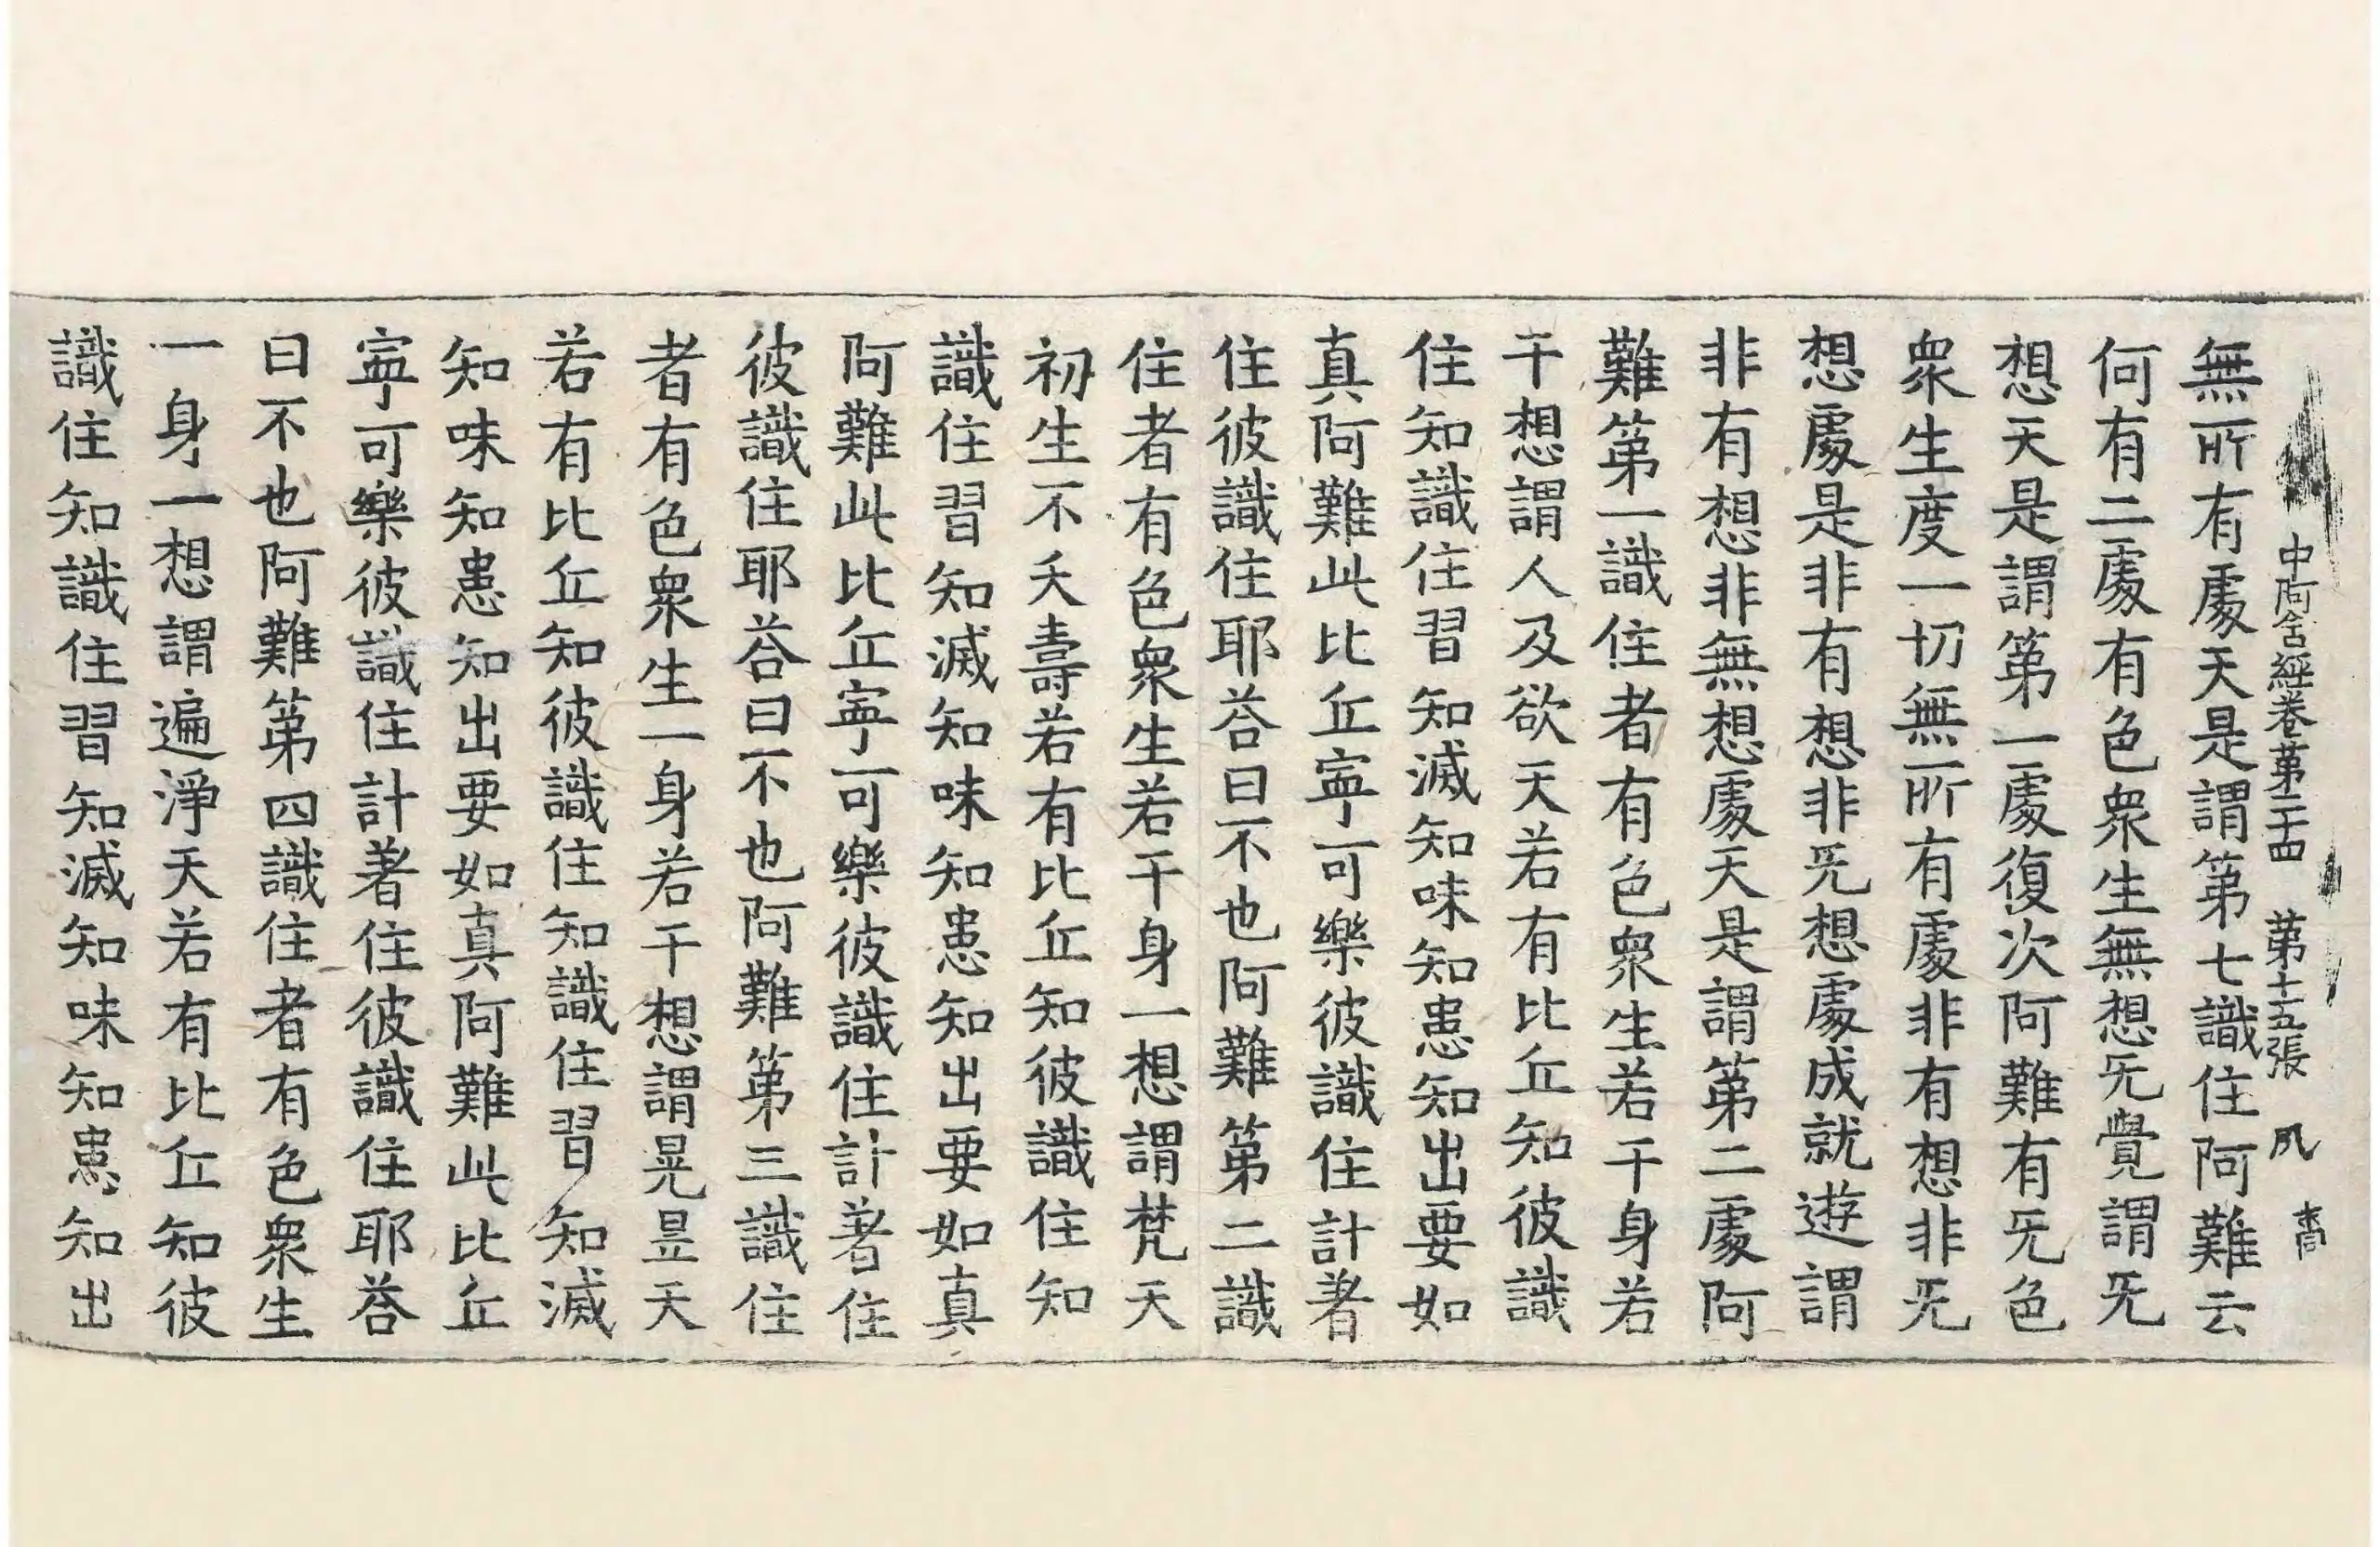 中阿含經卷第二十四　第十五張　夙
無所有處天是謂第七識住阿難云
何有二處有色衆生無想旡覺謂旡
想天是謂第一處復次阿難有旡色
衆生度一切無所有處非有想非旡
想處是非有想非旡想處成就遊謂
非有想非無想處天是謂第二處阿
難第一識住者有色衆生若干身若
干想謂人及欲天若有比丘知彼識
住知識住習知滅知味知患知出要如
真阿難此比丘寧可樂彼識住計著
住彼識住耶荅曰不也阿難第二識
住者有色衆生若干身一想謂梵天
初生不夭壽若有比丘知彼識住知
識住習知滅知味知患知出要如真
阿難此比丘寧可樂彼識住計著住
彼識住耶荅曰不也阿難第三識住
者有色衆生一身若干想謂晃昱天
若有比丘知彼識住知識住習知滅
知味知患知出要如真阿難此比丘
寧可樂彼識住計著住彼識住耶荅
曰不也阿難第四識住者有色衆生
一身一想謂遍淨天若有比丘知彼
識住知識住習知滅知味知患知出